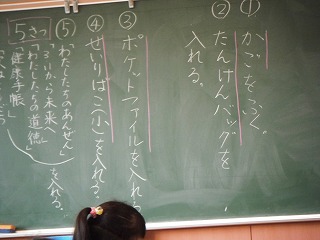 ① かごをふく。
② たんけんバッグを
入れる。
③ ポケットファイルを入れる
④ せいりばこ(小)を入れる
⑤ 「わたしたちのあんぜん」
「3.11から未来へ」
「わたしたちの道徳」
「健康手帳」
を入れる。
5さつ